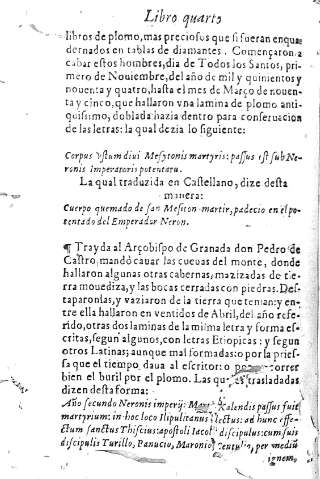 Libro quarto
libros de plomo, mas preciosos que si fueran enqua
dernados en tablas de diamantes. Començaron a
cabar estos hombres, dia de Todos los Santos, pri-
mero de Nouiembre, del año de mil y quinientos y
nouenta y quatro, hasta el mes de Março de nouen-
ta y cinco, que hallaron vna lamina de plomo anti-
quissimo, doblada hazia dentro para conseruacion
de las letras: la qual dezia lo siguiente:
Corpus vstum diui Mesytonis martyris: passus est sub Ne-
ronis Imperatoris potentatu.
La qual traduzida en Castellano, dize desta
manera:
Cuerpo quemado de san Mesiton martir, padecio en el po-
tentado del Emperador Neron.
¶ Trayda al Arçobispo de Granada don Pedro de
Castro, mandó cauar las cueuas del monte, donde
hallaron algunas otras cabernas, mazizadas de tie-
rra mouediza, y las bocas cerradas con piedras. Des-
taparonlas, y vaziaron de la tierra que tenian: y en-
tre ella hallaron en ventidos de Abril, del año refe-
rido, otras dos laminas de la misma letra y forma es-
critas, segun algunos, con letras Etiopicas: y segun
otros Latinas; aunque mal formadas: o por la pries-
sa que el tiempo daua al escritor: o correr
bien el buril por el plomo. Las trasladadas
dizen desta forma:
Año secundo Neronis imperij: Kalendis passus fuit
martyrium: in hoc loco Ilipulitanus ad hunc effe-
ctum sanctus Thiscius: apostoli discipulus: cum suis
discipulis Turillo, Panucio, Maronio per mediũ
ignem,